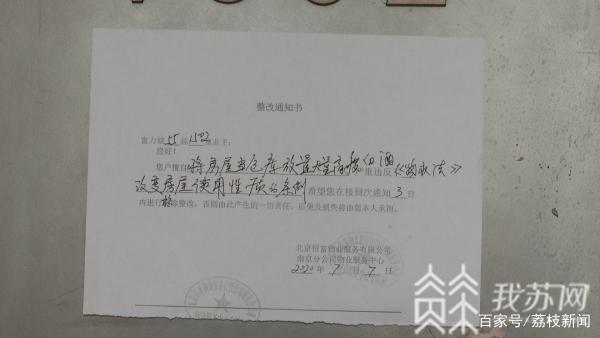 整改通知书
富力城55栋1502室业主:
您好!
您户擅自将房屋当仓库放置大量高度白酒 重违反《物权法》
改变房屋使用性质的条例 希望您在接到次通知3日
内进行 除整改,否则由此产生的一切责任、后果及损失将由您本人承担。
北京恒富物业服务有限公司
南京分公司物业服务中心
2020年7月7日
我苏网
百家号/荔枝新闻